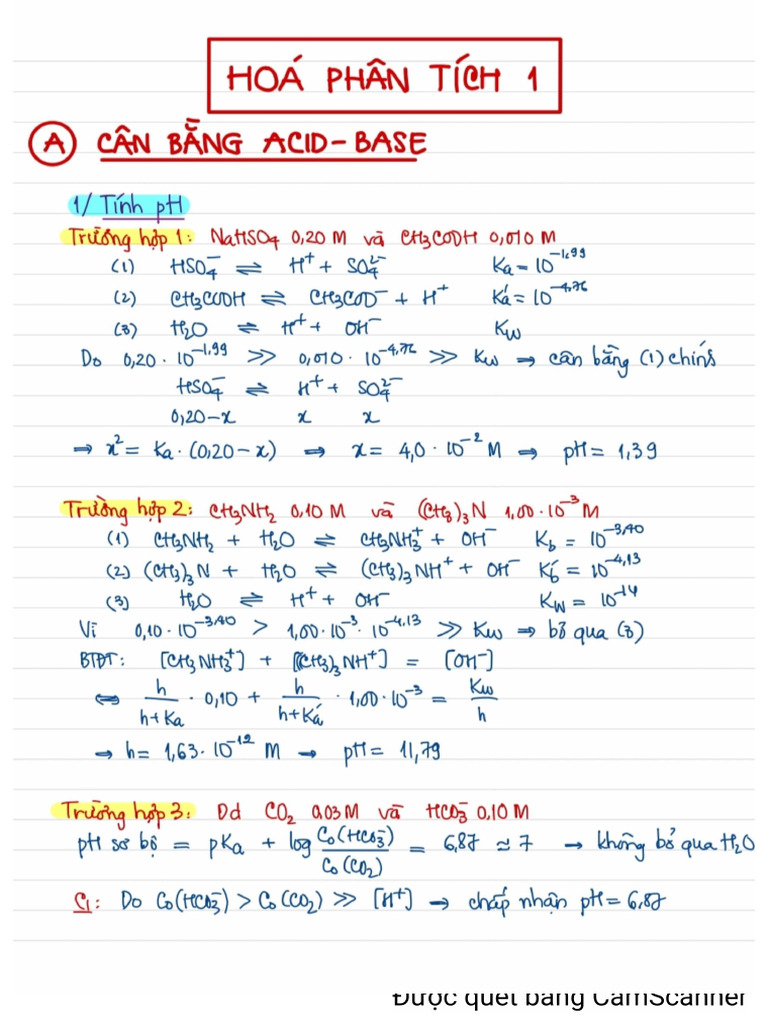 HOÁ PHÂN TÍCH 1
A CÂN BẰNG ACID-BASE
1/ Tính pH
Trường hợp 1: NaHSO₄ 0,20 M và CH₃COOH 0,010 M
(1) HSO₄⁻ ⇌ H⁺ + SO₄²⁻ Ka = 10^-1,99
(2) CH₃COOH ⇌ CH₃COO⁻ + H⁺ Ká = 10^-4,76
(3) H₂O ⇌ H⁺ + OH⁻ Kw
Do 0,20 · 10^-1,99 >> 0,010 · 10^-4,76 >> Kw → cân bằng (1) chính
HSO₄⁻ ⇌ H⁺ + SO₄²⁻
0,20-x x x
→ x² = Ka · (0,20 - x) → x = 4,0 · 10⁻² M → pH = 1,39
Trường hợp 2: CH₃NH₂ 0,10 M và (CH₃)₃N 1,00 · 10⁻³ M
(1) CH₃NH₂ + H₂O ⇌ CH₃NH₃⁺ + OH⁻ Kb = 10^-3,40
(2) (CH₃)₃N + H₂O ⇌ (CH₃)₃NH⁺ + OH⁻ Kb́ = 10^-4,13
(3) H₂O ⇌ H⁺ + OH⁻ Kw = 10⁻¹⁴
Vì 0,10 · 10^-3,40 > 1,00 · 10⁻³ · 10^-4,13 >> Kw → bỏ qua (3)
BTĐT: [CH₃NH₃⁺] + [(CH₃)₃NH⁺] = [OH⁻]
⇔ h/(h+Ka) · 0,10 + h/(h+Ká) · 1,00 · 10⁻³ = Kw/h
→ h = 1,63 · 10⁻¹² M → pH = 11,79
Trường hợp 3: Dd CO₂ 0.03 M và HCO₃⁻ 0,10 M
pH sơ bộ = pKa + log Co(HCO₃⁻)/Co(CO₂) = 6,87 ≈ 7 → không bỏ qua H₂O
C₁: Do Co(HCO₃⁻) > Co(CO₂) >> [H⁺] → chấp nhận pH = 6,87
Được quét bằng CamScanner